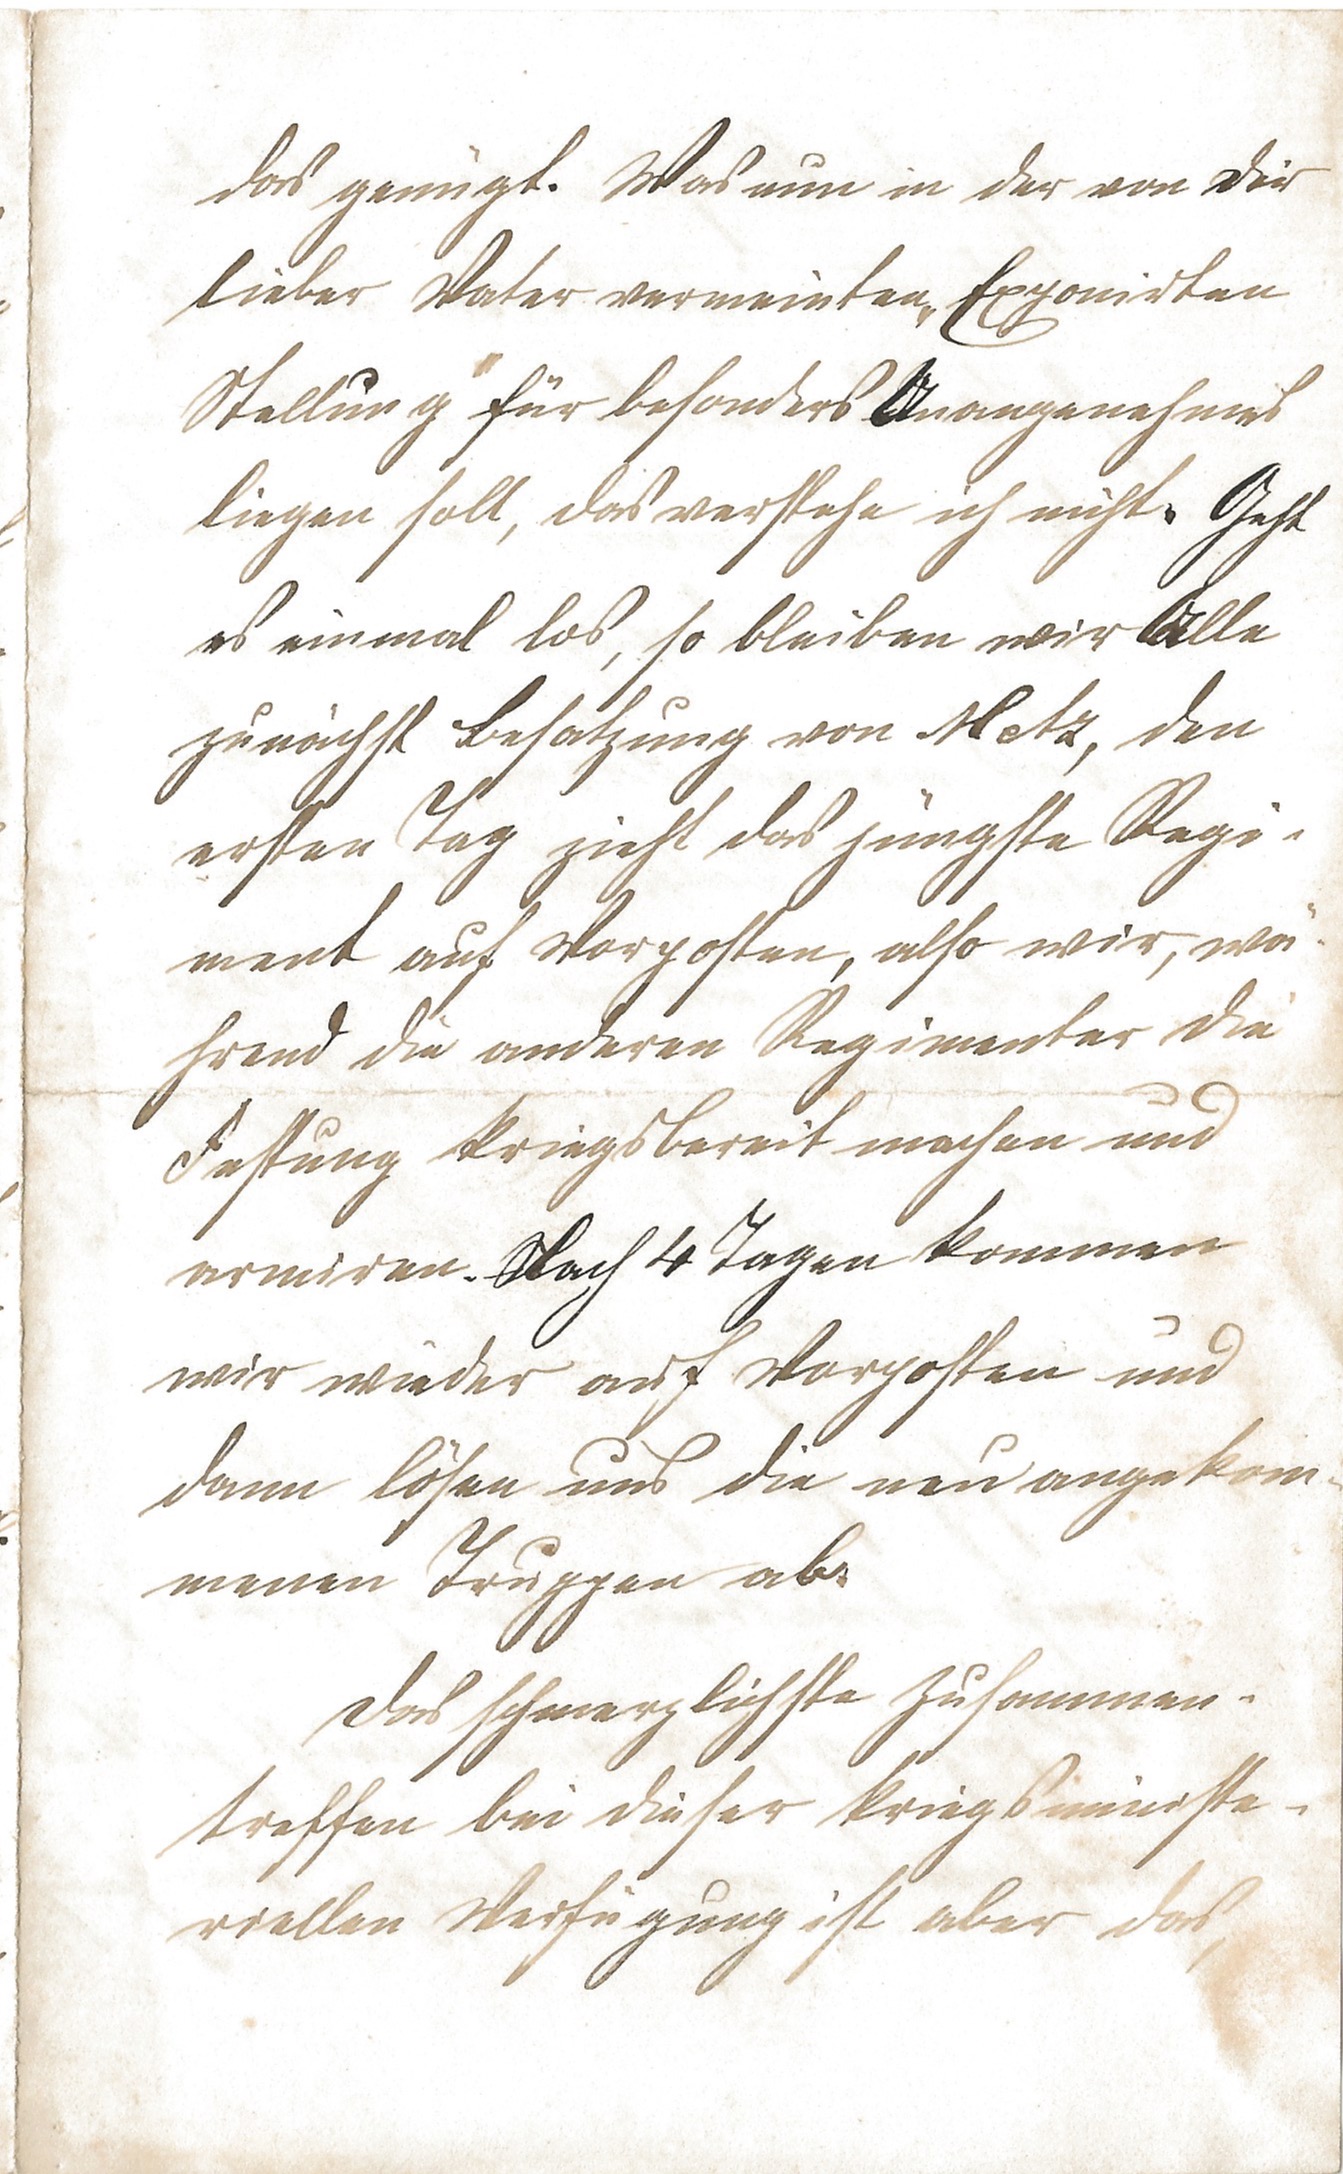 das genügt. Was nun in der von Dir
lieber Vater vermeinten „Exponirten
Stellung" für besonders Unangenehmes
liegen soll, das verstehe ich nicht. Geht
es einmal los, so bleiben wir Alle
zunächst Besatzung von Metz, den
ersten Tag zieht das jüngste Regi-
ment auf Vorposten, also wir, wä-
hrend die anderen Regimenter die
Festung kriegsbereit machen und
armiren. Nach 4 Tagen kommen
wir wieder auf Vorposten und
dann lösen uns die neu angekom-
menen Truppen ab.
Das schmerzlichste Zusammen-
treffen bei dieser kriegsministe-
riellen Verfügung ist aber das,